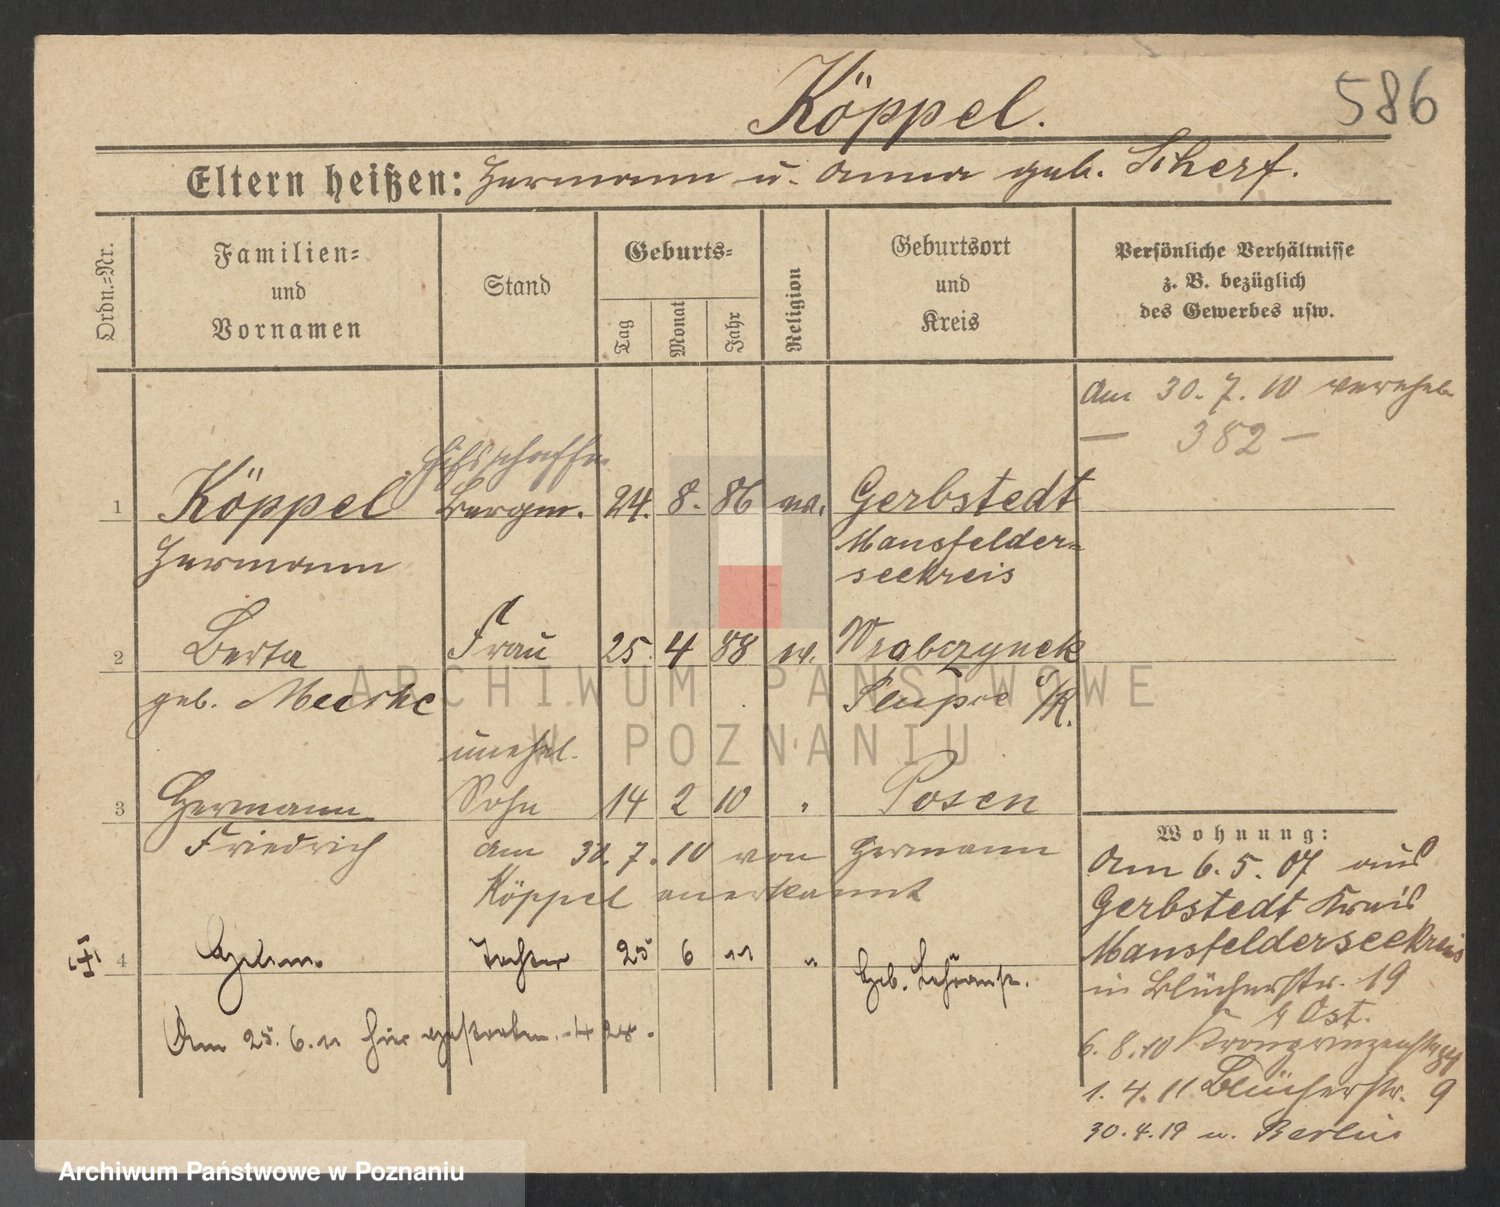 Köppel.
586
Eltern heißen: Hermann u. Anna geb. Scherf.
Ordn.=Nr.
Familien=
und
Vornamen
Stand
Geburts=
Tag
Monat
Jahr
Religion
Geburtsort
und
Kreis
Persönliche Verhältnisse
z. B. bezüglich
des Gewerbes usw.
Am 30. 7. 10 verehel.
— 382 —
Hilfsschaffn.
1 Köppel Bergm. 24. 8. 86 ev. Gerbstedt
Hermann
Mansfelder=
seekreis
2 Berta Frau 25. 4 88 ev.
geb.
unehel.
3 Hermann Sohn 14 2 10 " Posen
Friedrich
am 30. 7. 10 von Hermann
Köppel anerkannt
4 Tochter 25 6 11 "
Am 25. 6. 11 hier
Wohnung:
Am 6. 5. 07 aus
Gerbstedt Kreis
Mansfelderseekreis
in Blücherstr. 19
Ost.
6. 8. 10 Kronprinzenstr
1. 4. 11 Blücherstr. 9
30. 4. 19 n. Berlin
ARCHIWUM PAŃSTWOWE
W POZNANIU
Archiwum Państwowe w Poznaniu